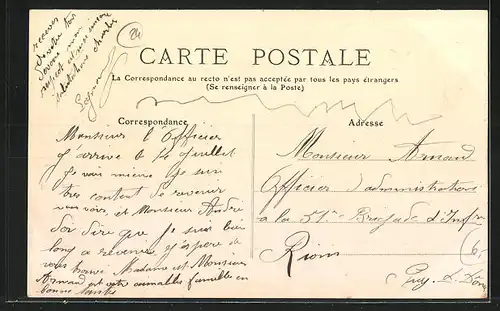 recevez
de votre
devoué
respect et mes
salutations
24
CARTE POSTALE
La Correspondance au recto n'est pas acceptée par tous les pays étrangers
(Se renseigner à la Poste)
Correspondance
Monsieur l'Officier
J'arrive le 14 Juillet
Je vais mieux je sui
tres content de revenir
vous voir, et Monsieur André
doi dire que je suis bien
long a revenir j'espere de
vous trouvé Madame et Monsieur
Arnaud et votre aimables famille en
bonne santé
Adresse
Monsieur Arnaud
Officier d'administrations
a la 51me Brigade d'Infrie
Riom
Puy-d-Dome
6.